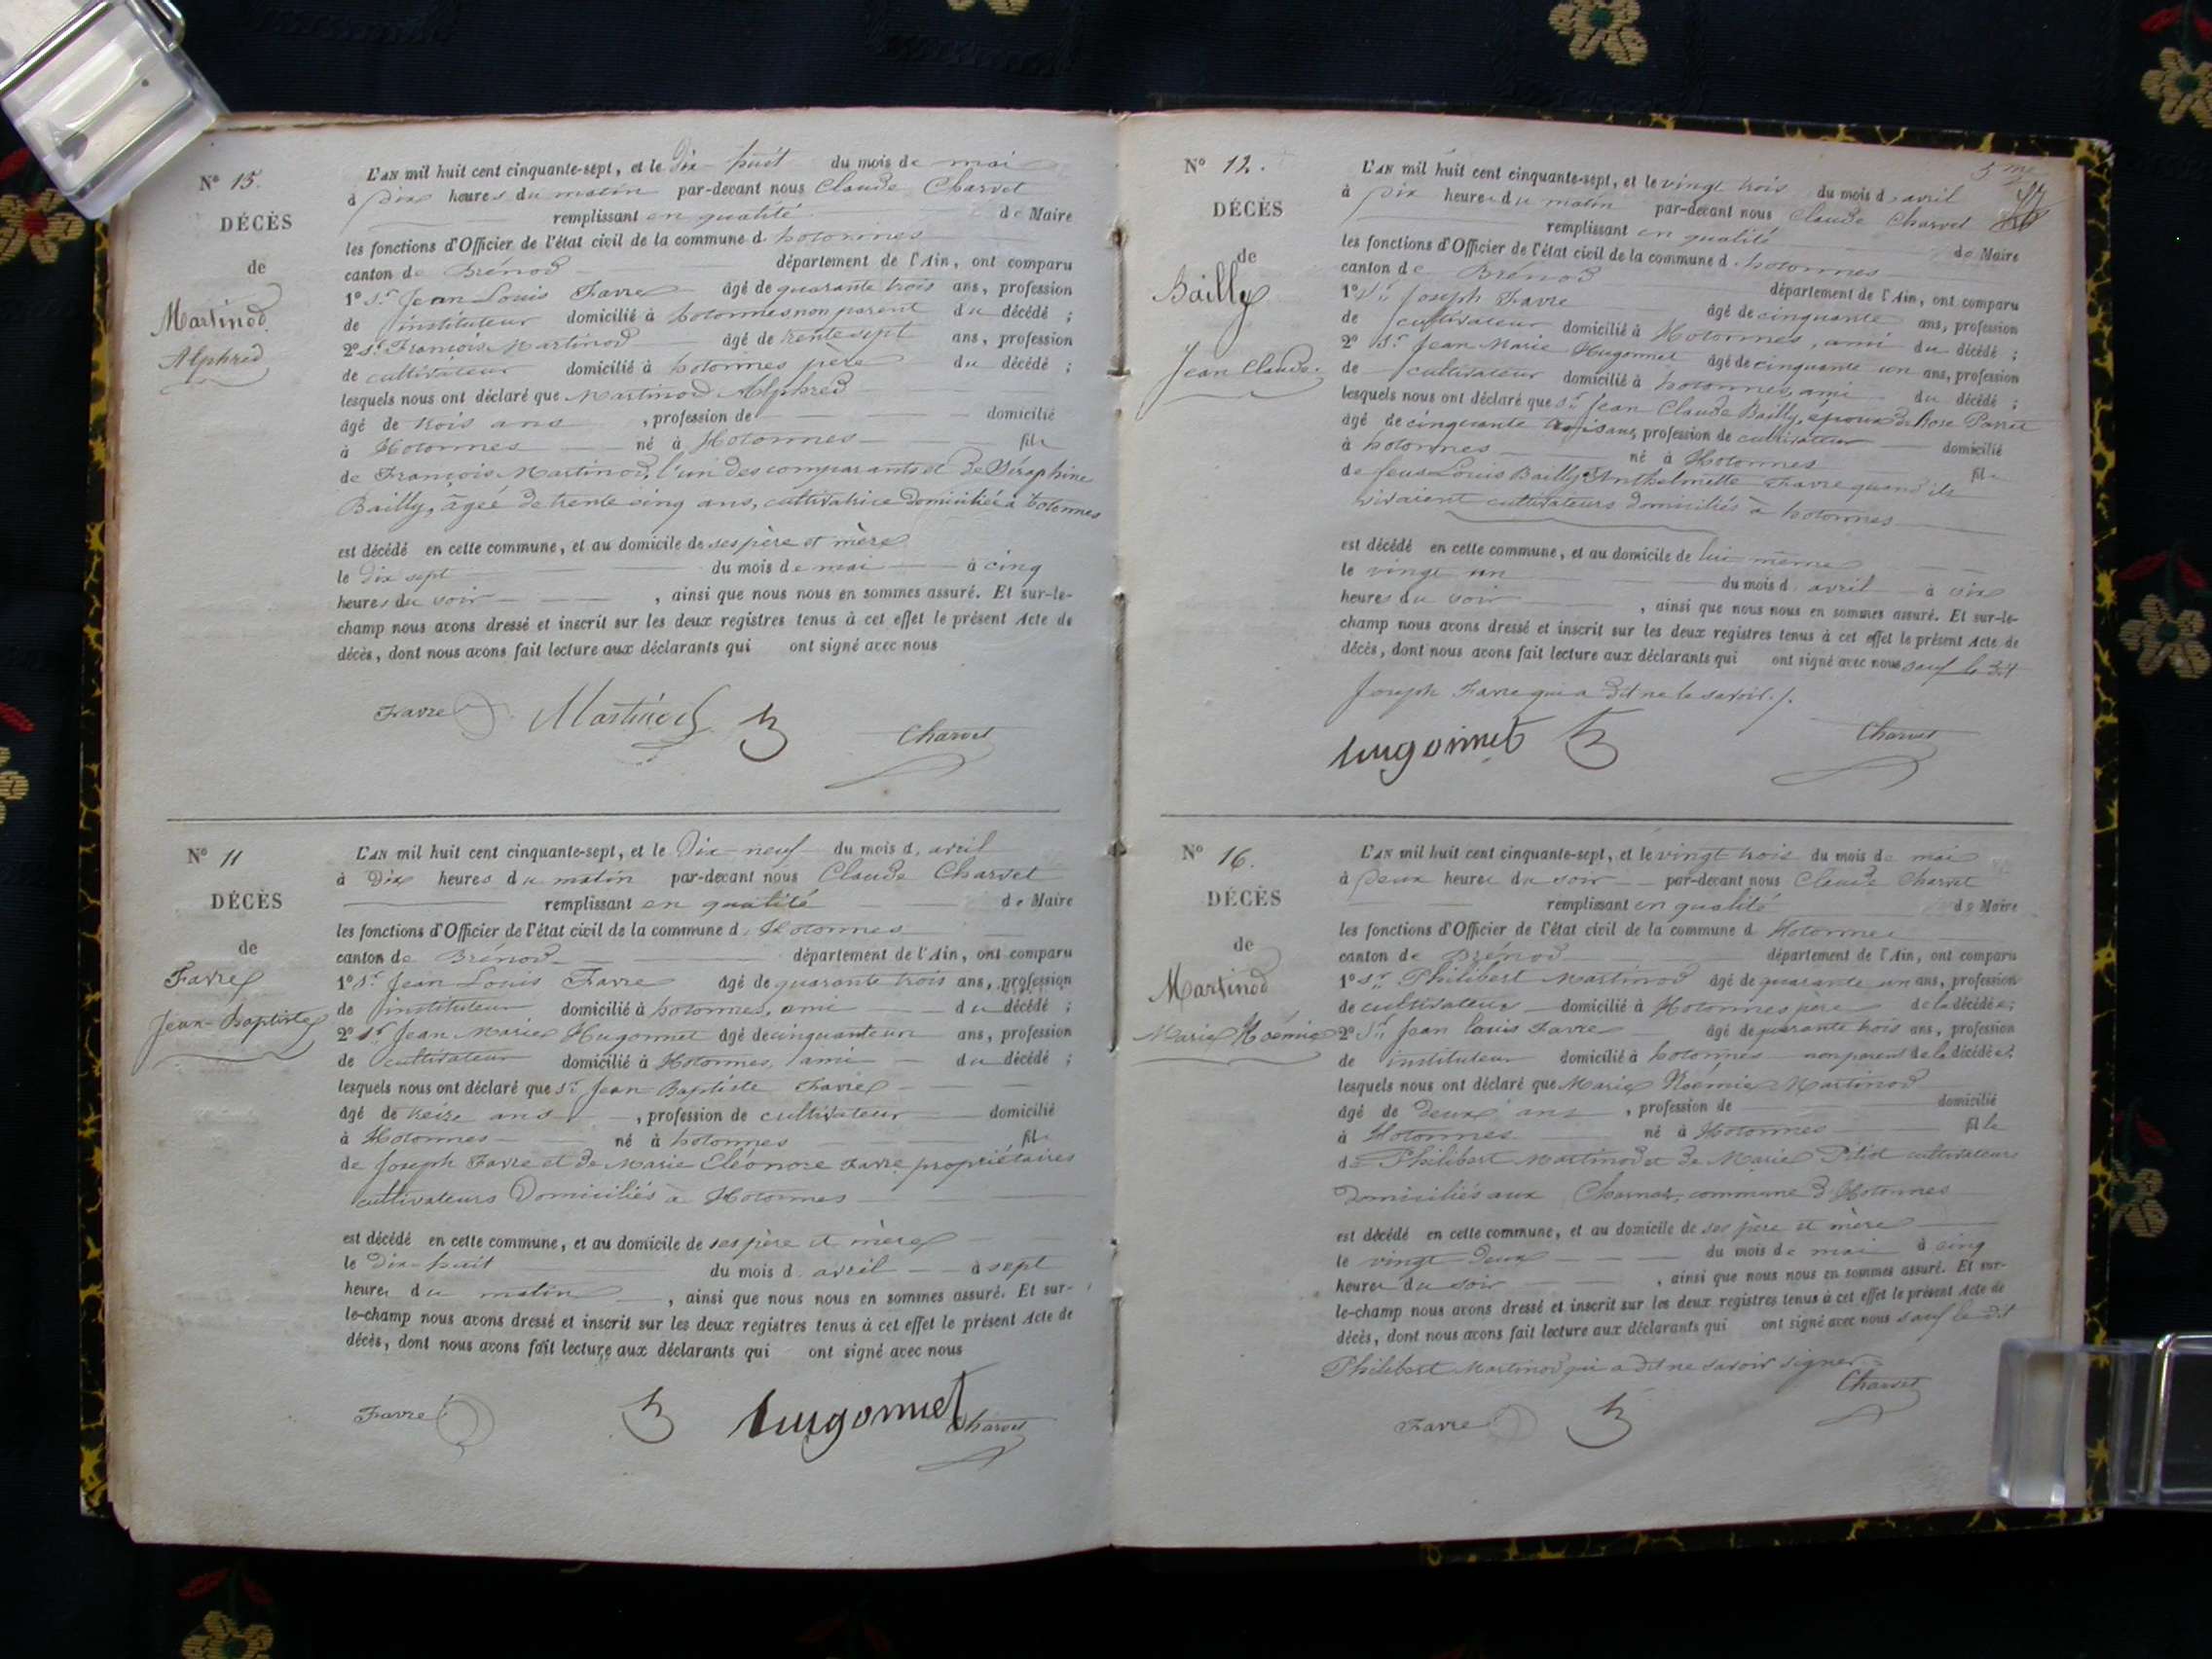 N° 15.
DÉCÈS
de
Martinod
Alphred
L'AN mil huit cent cinquante-sept, et le dix-huit du mois de mai
à dix heures du matin par-devant nous Claude Charvet
remplissant en qualité de Maire
les fonctions d'Officier de l'état civil de la commune d. hotonnes
canton de Brénod département de l'Ain, ont comparu
1° Sr. Jean Louis Favre âgé de quarante trois ans, profession
de instituteur domicilié à hotonnes non parent du décédé ;
2° Sr. François Martinod âgé de trente sept ans, profession
de cultivateur domicilié à hotonnes père du décédé ;
lesquels nous ont déclaré que Martinod Alphred
âgé de trois ans , profession de domicilié
à Hotonnes né à Hotonnes fils
de François Martinod, l'un des comparants et de Séraphine
Bailly, âgée de trente cinq ans, cultivatrice domiciliée à hotonnes
est décédé en cette commune, et au domicile de ses père et mère
le dix sept du mois de mai à cinq
heures du soir , ainsi que nous nous en sommes assuré. Et sur-le-
champ nous avons dressé et inscrit sur les deux registres tenus à cet effet le présent Acte de
décès, dont nous avons fait lecture aux déclarants qui ont signé avec nous
Favre Martinod Charvet
N° 11
DÉCÈS
de
Favre
Jean-Baptiste
L'AN mil huit cent cinquante-sept, et le Dix-neuf du mois d. avril
à Dix heures du matin par-devant nous Claude Charvet
remplissant en qualité de Maire
les fonctions d'Officier de l'état civil de la commune d. Hotonnes
canton de Brénod département de l'Ain, ont comparu
1° Sr. Jean Louis Favre âgé de quarante trois ans, profession
de instituteur domicilié à hotonnes, ami du décédé ;
2° Sr. Jean Marie Hugonnet âgé de cinquante un ans, profession
de cultivateur domicilié à Hotonnes, ami du décédé ;
lesquels nous ont déclaré que Sr. Jean Baptiste Favre
âgé de treize ans , profession de cultivateur domicilié
à Hotonnes né à hotonnes fils
de Joseph Favre et de Marie Eléonore Favre propriétaires
cultivateurs Domiciliés à Hotonnes
est décédé en cette commune, et au domicile de ses père et mère
le Dix-huit du mois d. avril à sept
heures du matin , ainsi que nous nous en sommes assuré. Et sur-
le-champ nous avons dressé et inscrit sur les deux registres tenus à cet effet le présent Acte de
décès, dont nous avons fait lecture aux déclarants qui ont signé avec nous
Favre hugonnet Charvet
5me
N° 12.
DÉCÈS
de
Bailly
Jean Claude.
L'AN mil huit cent cinquante-sept, et le vingt trois du mois d. avril
à dix heures du matin par-devant nous Claude Charvet
remplissant en qualité de Maire
les fonctions d'Officier de l'état civil de la commune d. hotonnes
canton de Brénod département de l'Ain, ont comparu
1° Sr. Joseph Favre âgé de cinquante ans, profession
de cultivateur domicilié à Hotonnes, ami du décédé ;
2° Sr. Jean Marie Hugonnet âgé de cinquante un ans, profession
de cultivateur domicilié à hotonnes, ami du décédé ;
lesquels nous ont déclaré que Sr. Jean Claude Bailly, époux de Rose
âgé de cinquante trois ans, profession de cultivateur domicilié
à hotonnes né à Hotonnes fils
de feus Louis Bailly & Anthelmette Favre quand ils
vivaient cultivateurs domiciliés à hotonnes
est décédé en cette commune, et au domicile de lui-même
le vingt un du mois d. avril à six
heures du soir , ainsi que nous nous en sommes assuré. Et sur-le-
champ nous avons dressé et inscrit sur les deux registres tenus à cet effet le présent Acte de
décès, dont nous avons fait lecture aux déclarants qui ont signé avec nous sauf le dit
Joseph Favre qui a dit ne le savoir./.
hugonnet Charvet
N° 16.
DÉCÈS
de
Martinod
Marie Noémie
L'AN mil huit cent cinquante-sept, et le vingt trois du mois de mai
à deux heures du soir par-devant nous Claude Charvet
remplissant en qualité de Maire
les fonctions d'Officier de l'état civil de la commune d Hotonnes
canton de Brénod département de l'Ain, ont comparu
1° Sr. Philibert Martinod âgé de quarante un ans, profession
de cultivateur domicilié à Hotonnes père de la décédée ;
2° Sr. Jean Louis Favre âgé de quarante trois ans, profession
de instituteur domicilié à hotonnes non parent de la décédée ;
lesquels nous ont déclaré que Marie Noémie Martinod
âgé de deux ans , profession de domicilié
à Hotonnes né à Hotonnes fille
de Philibert Martinod et de Marie cultivateurs
Domiciliés aux commune d'Hotonnes
est décédé en cette commune, et au domicile de ses père et mère
le vingt-deux du mois de mai à cinq
heures du soir , ainsi que nous nous en sommes assuré. Et sur-
le-champ nous avons dressé et inscrit sur les deux registres tenus à cet effet le présent Acte de
décès, dont nous avons fait lecture aux déclarants qui ont signé avec nous sauf le dit
Philibert Martinod qui a dit ne savoir signer.
Charvet
Favre